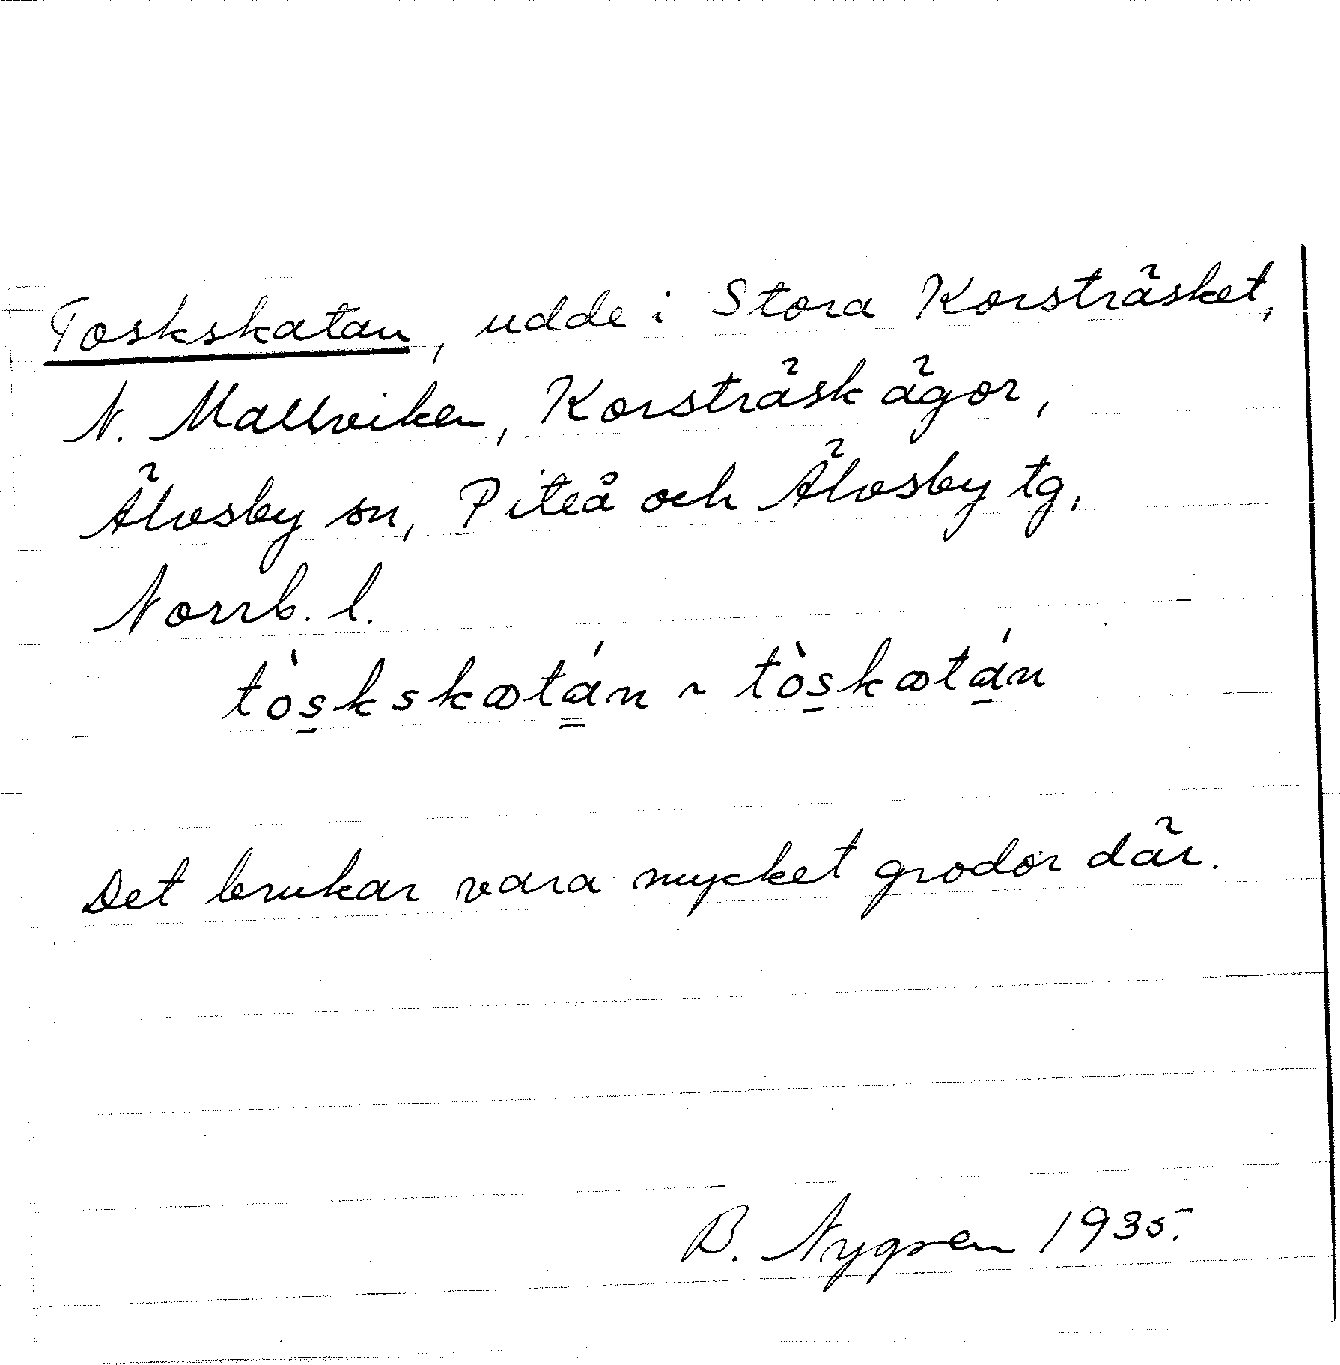 Toskskatan, udde i Stora Korsträsket,
N. Mallviken, Korsträsk ägor,
Älvsby sn, Piteå och Älvsby tg,
Norrb. l.
tòskskatán ~ tòskatán
Det brukar vara mycket grodor där.
B. Nygren 1935.